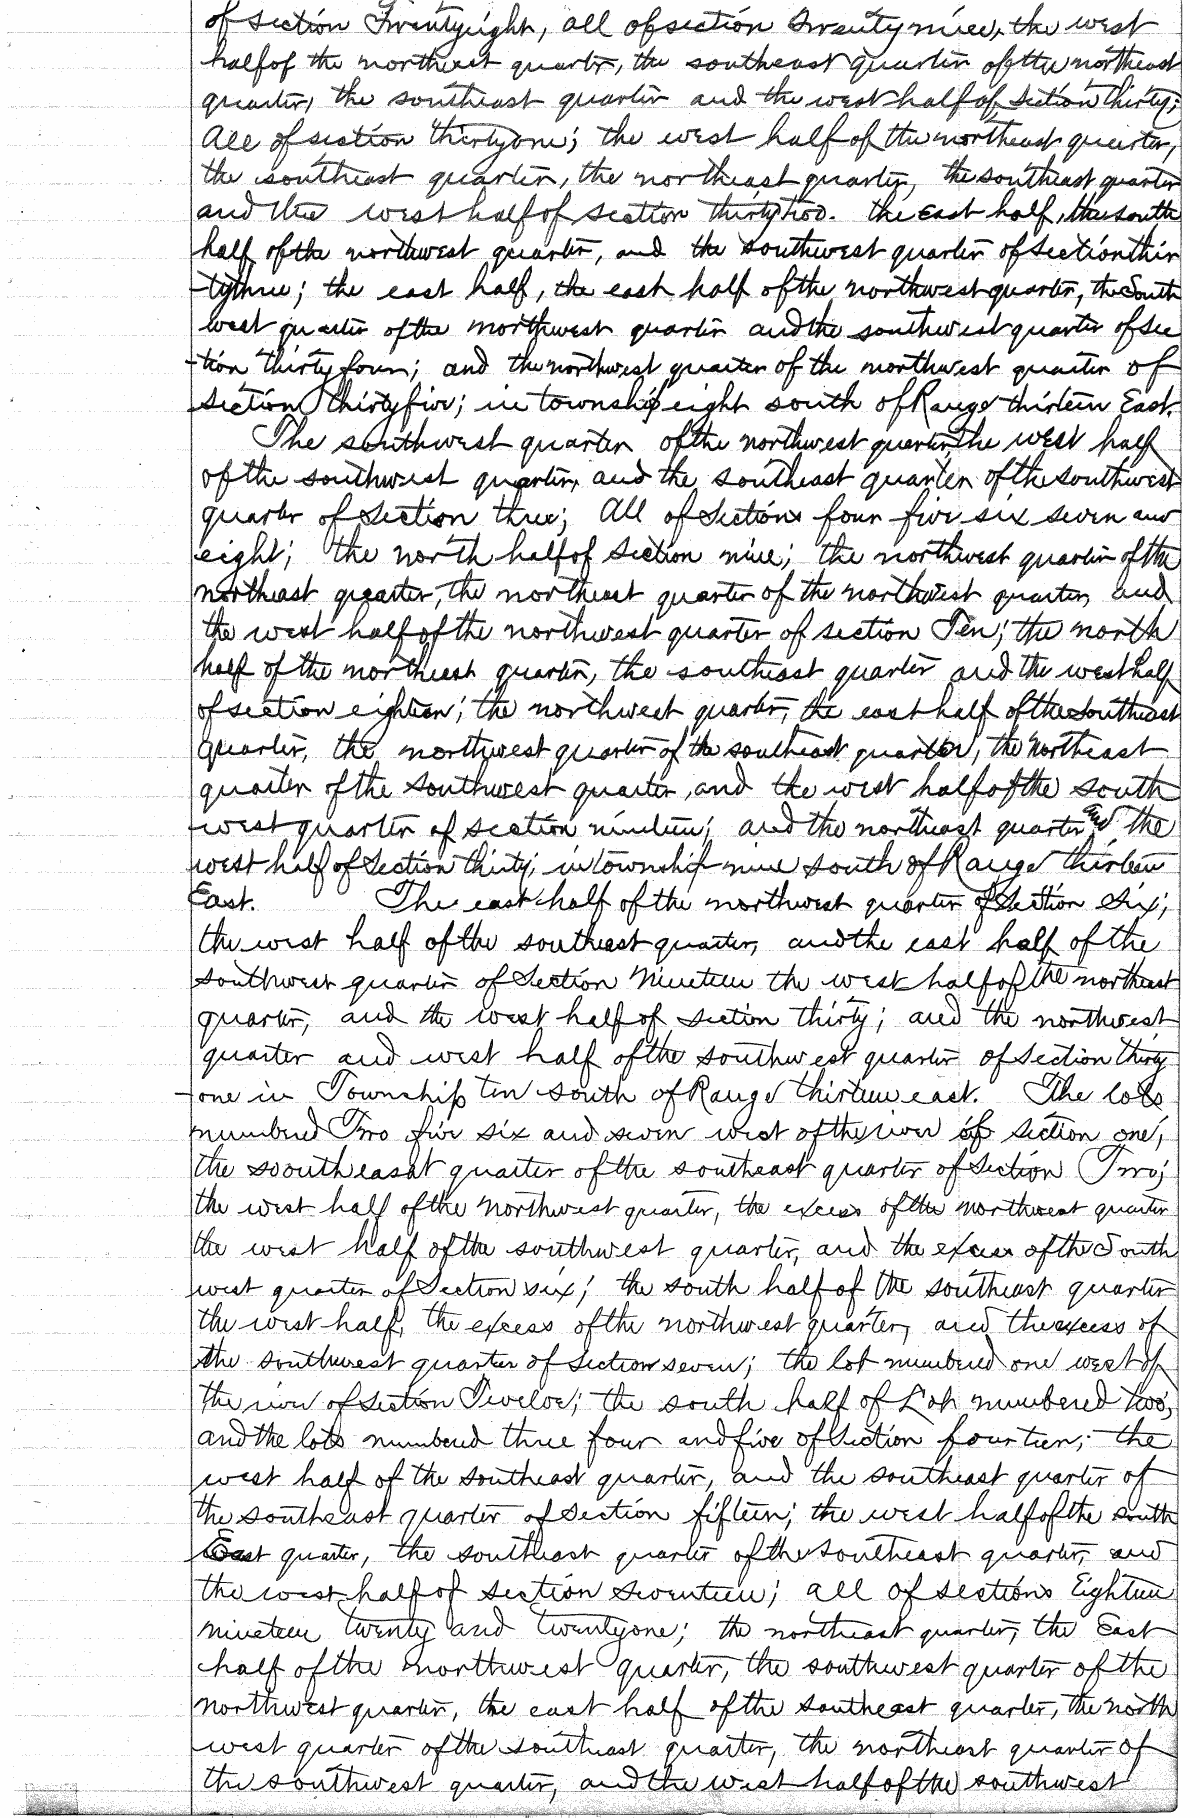 of section Twentyeight, all of section Twentynine, the west
half of the northeast quarter, the southeast quarter of the northeast
quarter, the southeast quarter and the west half of Section Thirty;
All of section thirtyone; the west half of the northeast quarter,
the southeast quarter, the northeast quarter, the southeast quarter
and the west half of section thirtytwo. the east half, the south
half of the northwest quarter, and the southwest quarter of section thir
-tythree; the east half, the east half of the northwest quarter, the South
west quarter of the northwest quarter and the southwest quarter of sec
-tion thirtyfour; and the northwest quarter of the northwest quarter of
section thirtyfive; in township eight south of Range thirteen East.
The southwest quarter of the northwest quarter, the west half
of the southwest quarter, and the southeast quarter of the southwest
quarter of Section three; All of Sections four five six seven and
eight; the north half of Section nine; the northwest quarter of the
northeast quarter, the northeast quarter of the northwest quarter, and
the west half of the northwest quarter of section Ten; the north
half of the northeast quarter, the southeast quarter and the west half
of section eighteen; the northwest quarter, the east half of the southeast
quarter, the northwest quarter of the southeast quarter, the northeast
quarter of the southwest quarter, and the west half of the south
west quarter of section nineteen; and the northeast quarter and the
west half of Section thirty; in township nine south of Range thirteen
East. The east half of the northwest quarter of Section Six;
the west half of the southeast quarter, and the east half of the
southwest quarter of Section Nineteen the west half of the northeast
quarter, and the west half of section thirty; and the northwest
quarter and west half of the southwest quarter of section thirty
-one in Township ten south of Range thirteen east. The lots
numbered Two five six and seven west of the river of section one;
the sooutheasat quarter of the southeast quarter of Section Two;
the west half of the northwest quarter, the excess of the northwest quarter
the west half of the southwest quarter, and the excess of the South
west quarter of Section six; the south half of the southeast quarter
the west half, the excess of the northwest quarter, and the excess of
the southwest quarter of Section seven; the lot numbered one west of
the river of Section Twelve; the south half of Lot numbered two,
and the lots numbered three four and five of Section fourteen; the
west half of the southeast quarter, and the southeast quarter of
the southeast quarter of Section fifteen; the west half of the south
East quarter, the southeast quarter of the southeast quarter, and
the west half of section seventeen; all of sections Eighteen
nineteen twenty and twentyone; the northeast quarter, the East
half of the northwest quarter, the southwest quarter of the
northwest quarter, the east half of the southeast quarter, the north
west quarter of the southeast quarter, the northeast quarter of
the southwest quarter, and the west half of the southwest